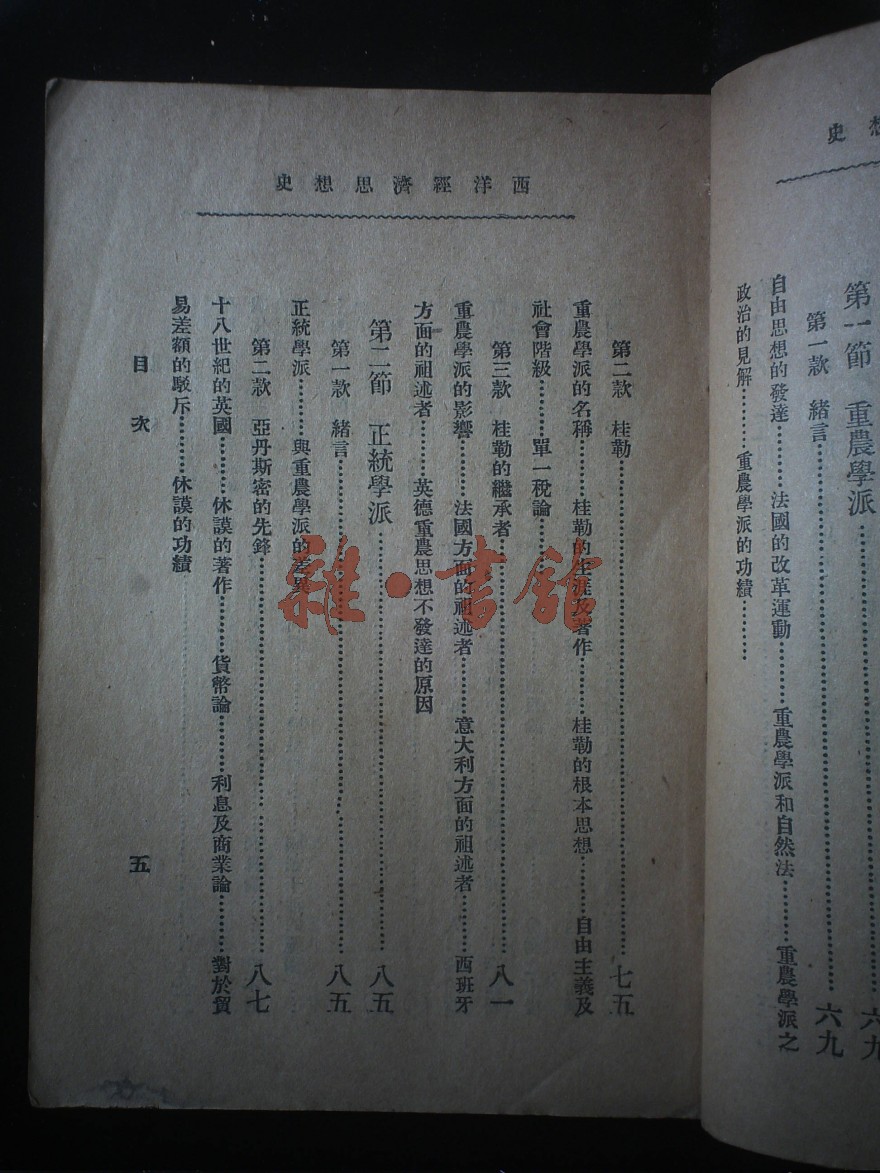 想史
第一節　重農學派………六九
第一款　緒言………六九
自由思想的發達………法國的改革運動………重農學派和自然法………重農學派之
政治的見解………重農學派的功績………
西洋經濟思想史
第二款　桂勒………七五
重農學派的名稱………桂勒的生涯及著作………桂勒的根本思想………自由主義及
社會階級………單一稅論………
第三款　桂勒的繼承者………八一
重農學派的影響………法國方面的祖述者………意大利方面的祖述者………西班牙
方面的祖述者………英德重農思想不發達的原因
第二節　正統學派………八五
第一款　緒言………八五
正統學派………與重農學派的差異
第二款　亞丹斯密的先鋒………八七
十八世紀的英國………休謨的著作………貨幣論………利息及商業論………對於貿
易差額的駁斥………休謨的功績
目次
五
雜·書館